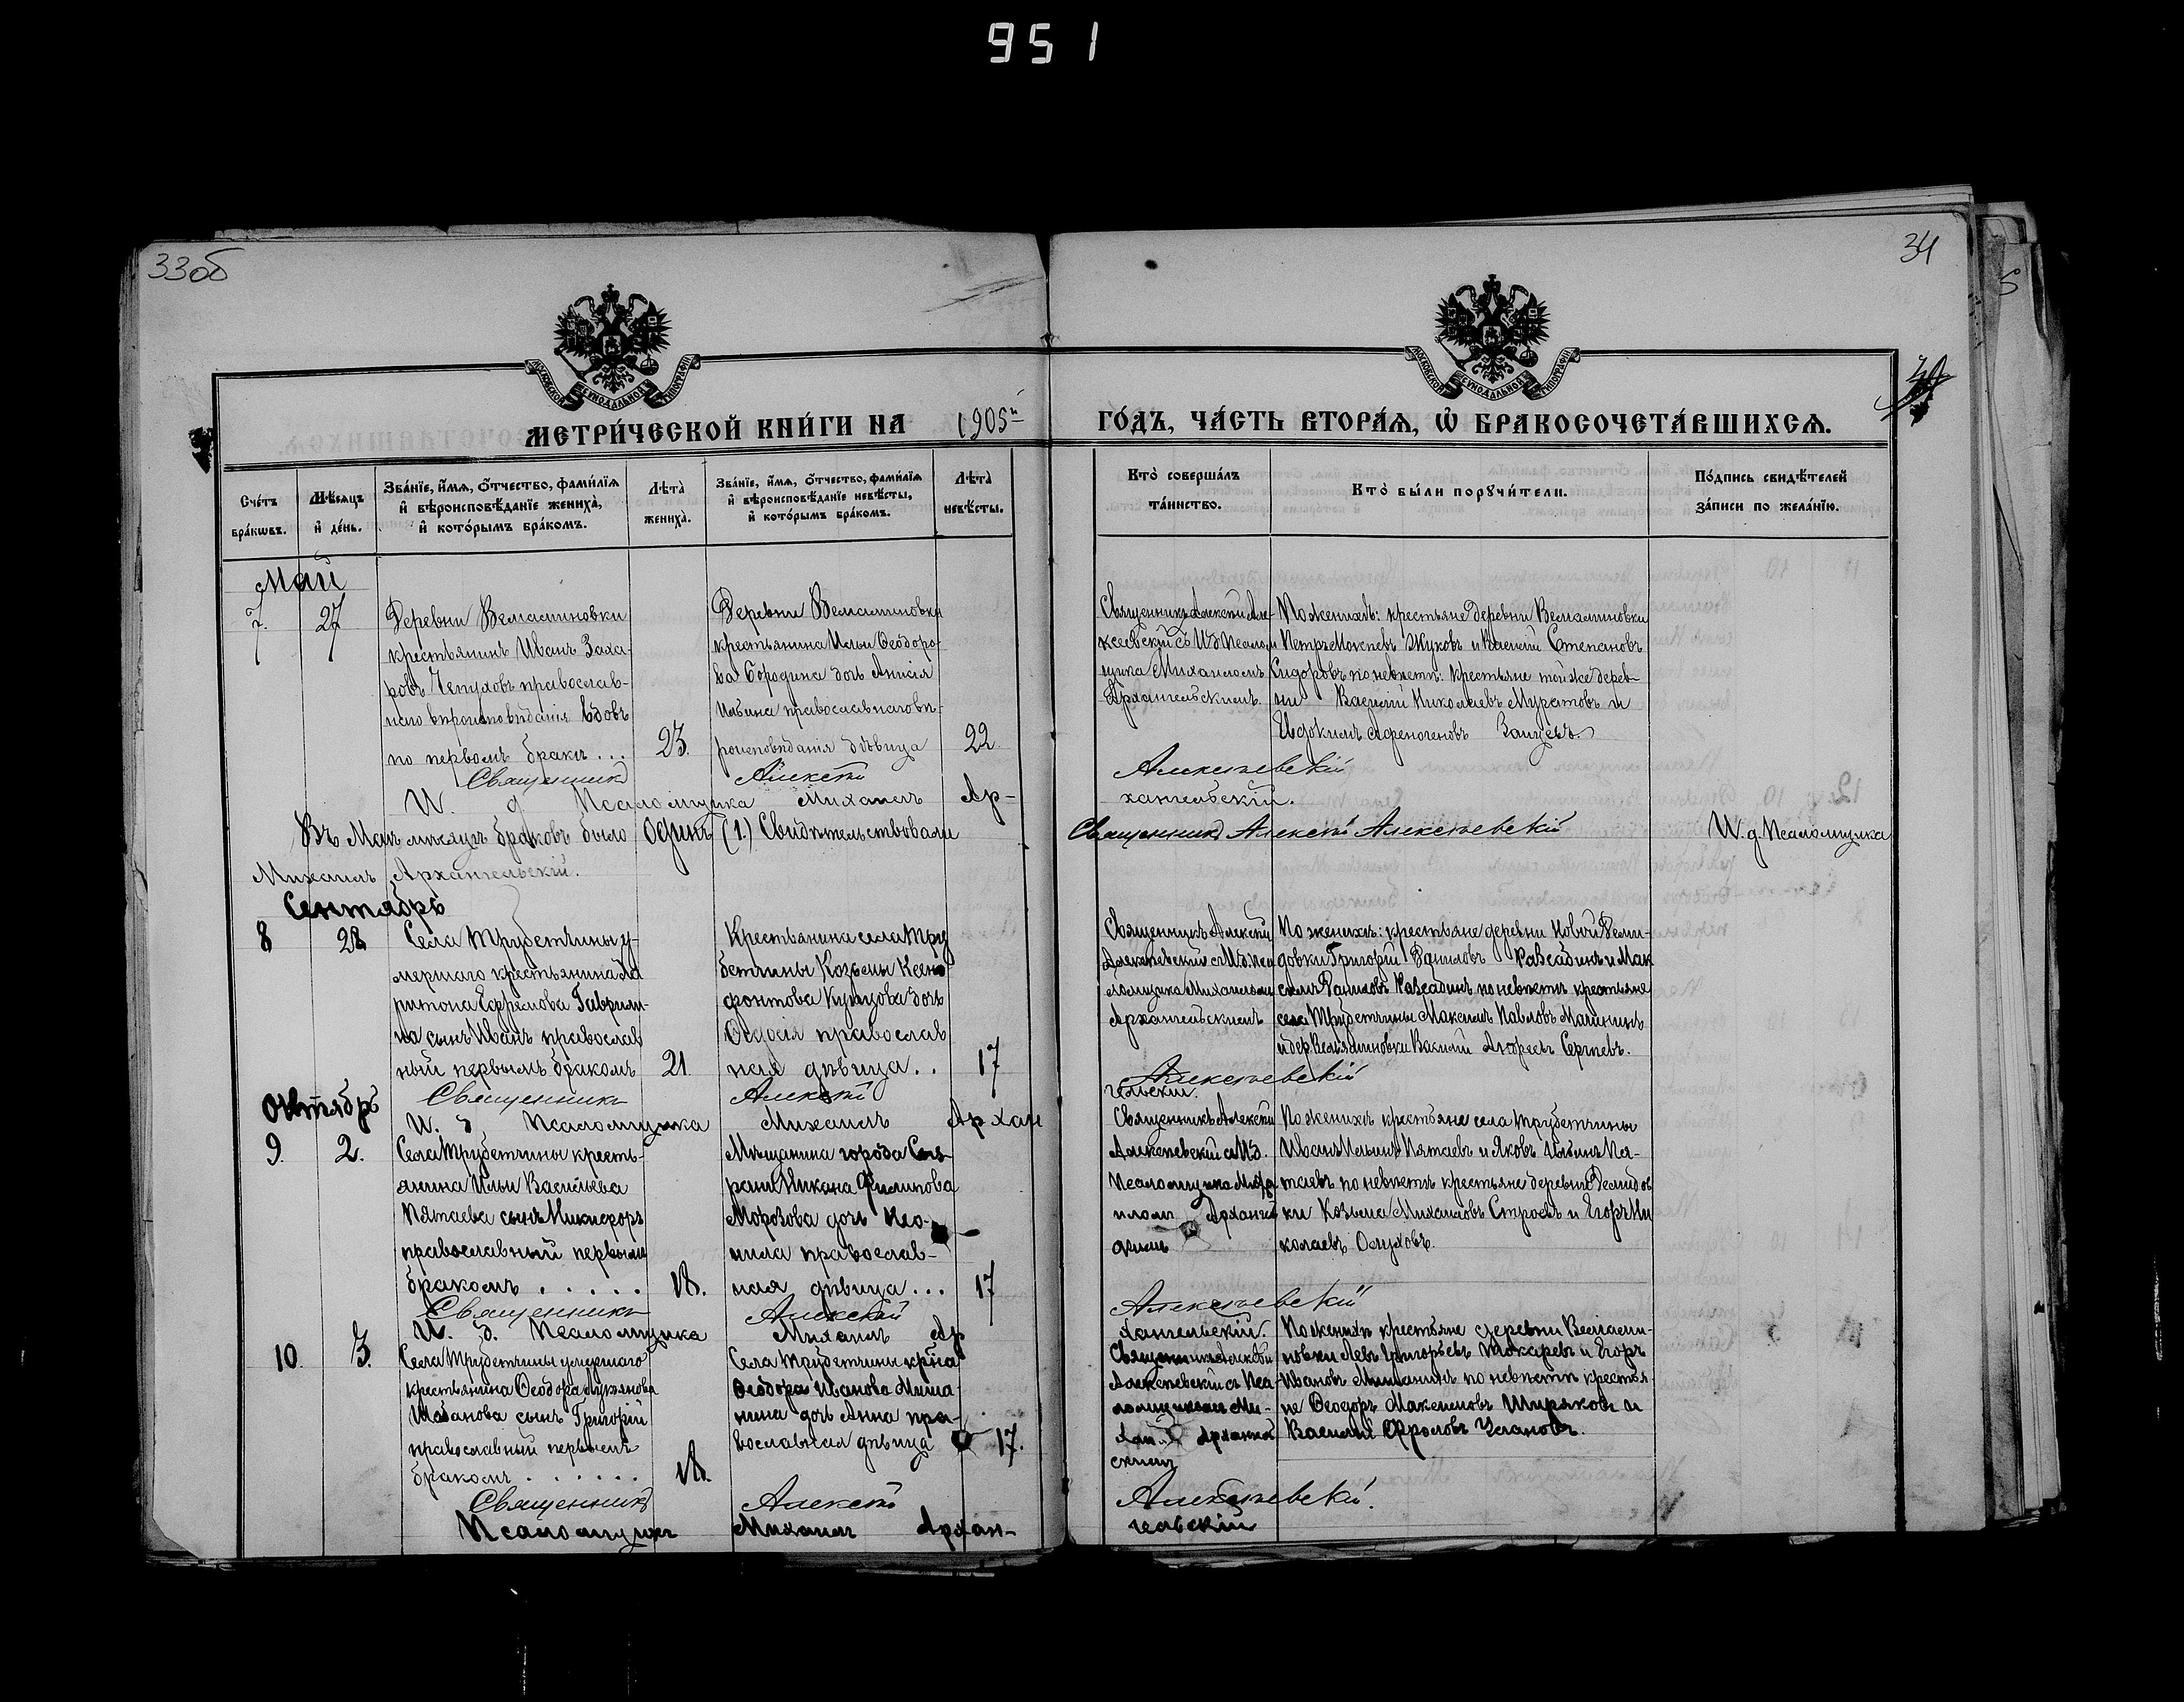 951
33об
34
МОСКОВСКОЙ СѴНОДАЛЬНОЙ ТИПОГРАФІИ
МОСКОВСКОЙ СѴНОДАЛЬНОЙ ТИПОГРАФІИ
МЕТРИ́ЧЕСКОЙ КНИ́ГИ НА 1905й ГО́ДЪ, ЧА́СТЬ ВТОРА́Ѧ, Ѡ҆ БРАКОСОЧЕТА́ВШИХСѦ.
Сче́тъ
бра́кѡвъ.
Мѣ́сѧцъ
и҆ де́нь.
Зва́нїе, и҆́мѧ, ѻ҆́тчество, фами́лїѧ
и҆ вѣроисповѣ́данїе жениха̀,
и҆ кото́рымъ бра́комъ.
Лѣта̀
жениха̀.
Зва́нїе, и҆́мѧ, ѻ҆́тчество, фами́лїѧ
и҆ вѣроисповѣ́данїе невѣ́сты,
и҆ кото́рымъ бра́комъ.
Лѣта̀
невѣ́сты.
Кто̀ соверша́лъ
та́инство.
Кто̀ бы́ли порꙋчи́тели.
По́дпись свидѣ́телей
за́писи по жела́нїю.
Май
7. 27
Деревни Веньаминовки
крестьянинъ Иванъ Заха-
ровъ Чепуховъ православ-
наго вѣроисповѣданія вдовъ
по первомъ бракѣ ...
23.
Деревни Веньаминовки
крестьянина Ильи Ѳеодоро-
ва Бородина дочь Анисія
Ильина православнаго вѣ-
роисповѣданія дѣвица
22.
Священникъ Алексѣй Але-
ксеевскій съ И.д. Псалом
щика Михаиломъ
Архангельскимъ.
По женихѣ: крестьяне деревни Веньаминовки
Петръ Мокіевъ Жуковъ и Василій Степановъ
Сидоровъ по невѣстѣ: крестьяне той же дерев-
ни Василій Николаевъ Муратовъ и
Евдокимъ Афеногеновъ Зайцевъ.
Священникъ Алексѣй Алексѣевскій
И. д. Псаломщика Михаилъ Ар-
хангельскій.
Въ Маѣ мѣсяцѣ браковъ было Одинъ (1.) Свидѣтельствовали
Священникъ Алексѣй Алексѣевскій И. д. Псаломщика
Михаилъ Архангельскій.
Сентябрь
8 28
Села Трубетчины у-
мершаго крестьянина Ха
ритона Ефремова Гаврили-
на сынъ Иванъ православ
ный первымъ бракомъ
21.
Крестьянина села Тру
бетчины Козьмы Ксено
фонтова Купцова дочь
Ѳеодосія православ
ная дѣвица ..
17
Священникъ Алексѣй
Алексѣевскій съ И.д. Пса
ломщика Михаиломъ
Архангельскимъ
По женихѣ: крестьяне деревни Новой Деми-
довки Григорій Даниловъ Казеадинъ и Мак
симъ Даниловъ Казеадинъ по невѣстѣ крестьяне
села Трубетчины Максимъ Павловъ Малининъ
и дер. Веньяминовки Василій Андреевъ Сергѣевъ.
Священникъ Алексѣй Алексѣевскій
И. д. Псаломщика Михаилъ Архан
гельскій.
Октябрь
9. 2.
Села Трубетчины кресть-
янина Ильи Васильева
Пятаева сынъ Никифоръ
православный первымъ
бракомъ .....
18.
Мѣщанина города
Никона Филипова
Морозова дочь Нео-
нила православ-
ная дѣвица ...
17
Священникъ Алексѣй
Алексѣевскій съ И.д.
Псаломщика Миха
иломъ Архангель
скимъ
По женихѣ крестьяне села Трубетчины
Иванъ Ильинъ Пятаевъ и Яковъ Ильинъ Пя-
таевъ по невѣстѣ крестьяне деревни Демидов
ки Козьма Михаиловъ Строевъ и Егоръ Ни
колаевъ Обуховъ.
Священникъ Алексѣй Алексѣевскій
И. д. Псаломщика Михаилъ Ар
хангельскій.
10. 3.
Села Трубетчины умершаго
крестьянина Ѳеодора Лукьянова
Шабанова сынъ Григорій
православный первымъ
бракомъ ......
18.
Села Трубетчины кр-на
Ѳеодора Иванова Миша
нина дочь Анна пра-
вославная дѣвица
17.
Священникъ Алексѣй
Алексѣевскій съ Пса-
ломщикомъ Ми-
хаи Архангель
скимъ
По женихѣ крестьяне деревни Веньами-
новки Левъ Григорьевъ Токаревъ и Егоръ
Ивановъ Мишанинъ по невѣстѣ крестья-
не Ѳеодоръ Максимовъ Ширяковъ и
Василій Фроловъ Улановъ.
Священникъ Алексѣй Алексѣевскій.
Псаломщикъ Михаилъ Архан-
гельскій